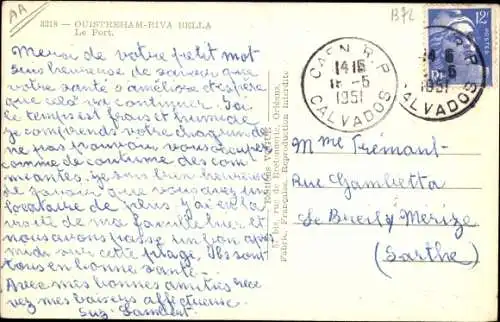 AA
B72
3218 - OUISTREHAM-RIVA BELLA
Le Port.
Merci de votre petit mot
suis heureuse de savoir que
votre santé s'améliore et espère
que cela va continuer. Ici
le temps est frais et humide
je comprends votre chagrin de
ne pas pouvoir vous occuper
comme de coutume des com
muniantes. Je suis bien heureuse
de savoir que vous avez un
locataire de plus. J'ai eu la
visite de ma famille hier et
nous avons passé un bon après
midi sur cette plage. Ils sont
tous en bonne santé.
Avec mes bonnes amitiés rece
vez mes baisers affectueux
Suz. Lambert.
Editions
57 bis, rue de Bourgogne, Orléans
Fabric. Française. Reproduction interdite
CAEN R.P
14 15
15 -5
1951
CALVADOS
12F
POSTES
R.P
1951
CALVADOS
Mme Frémont
Rue Gambetta
Le Breil s/ Merize
(Sarthe)